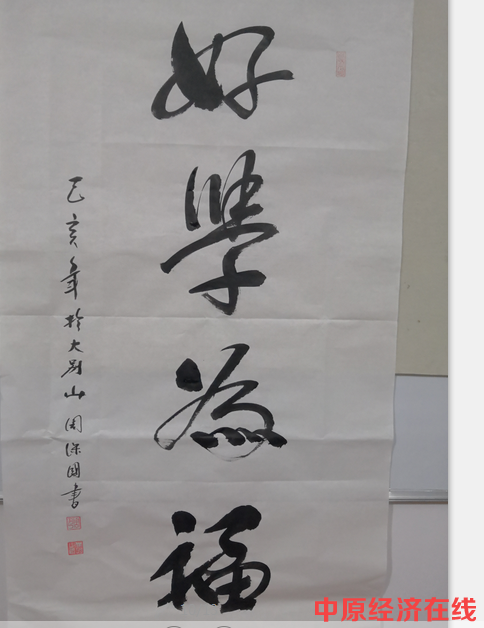 好學为福
己亥年於大别山周保国書
中原经济在线